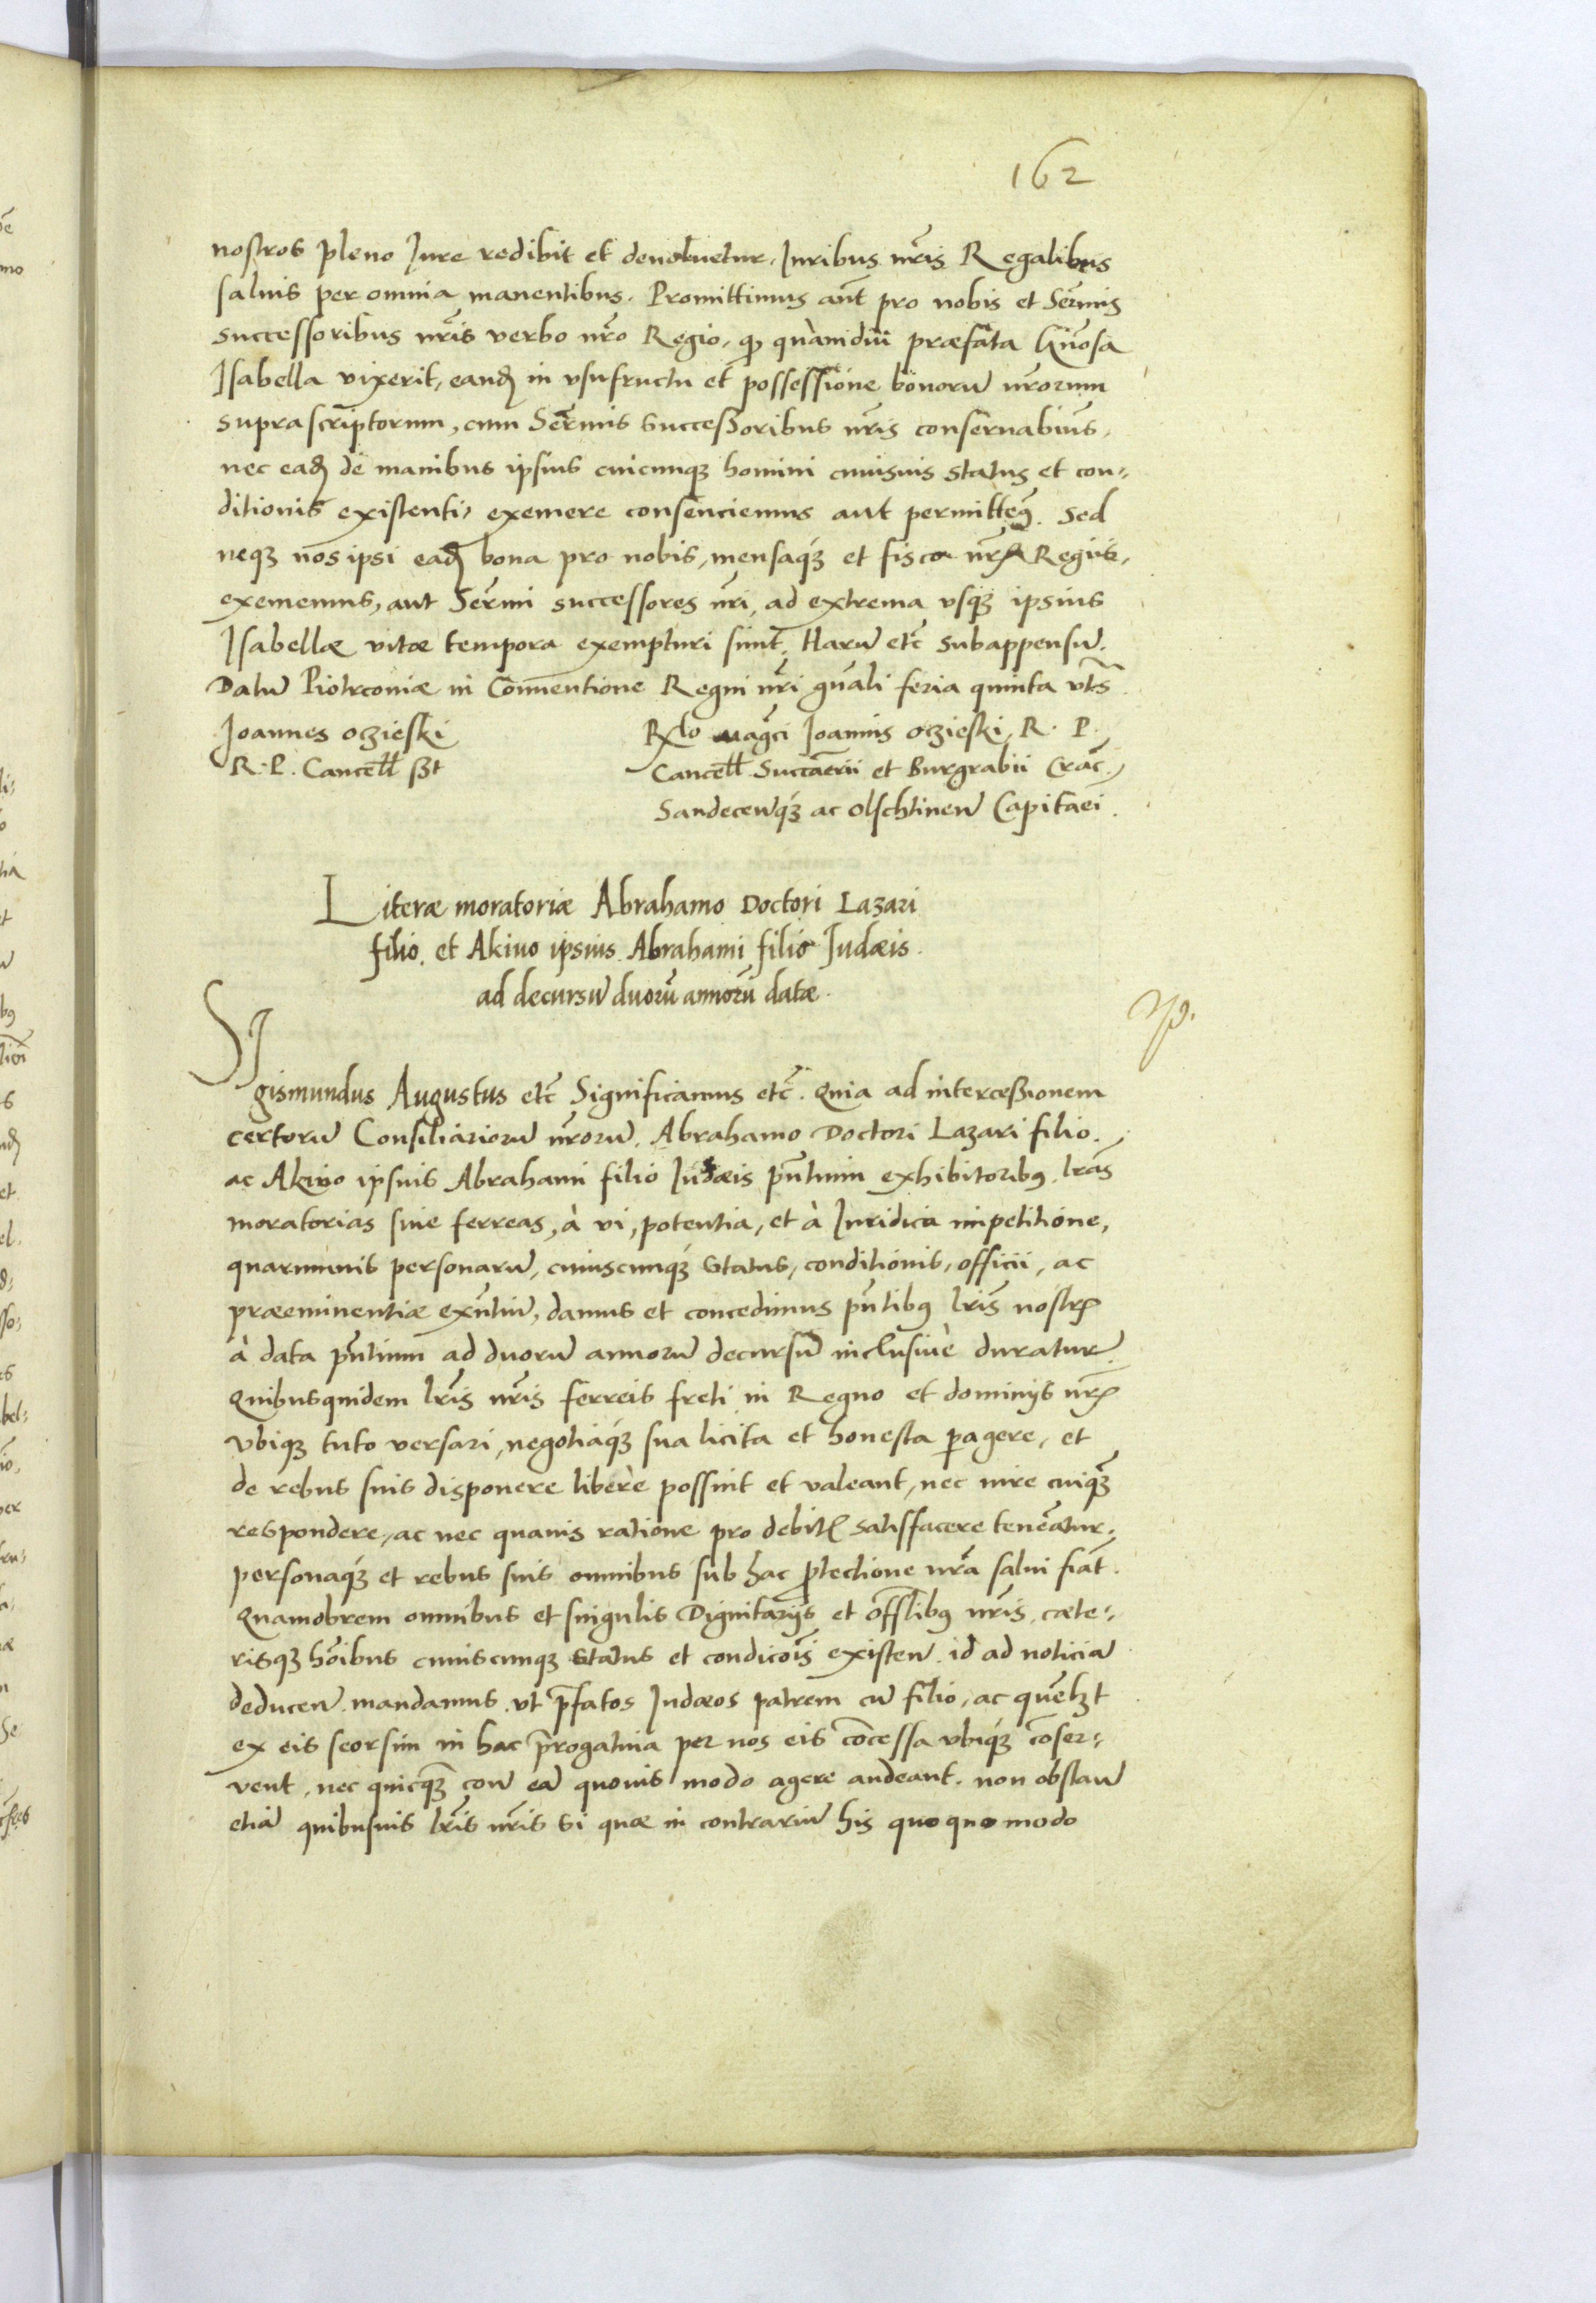 162
nostros pleno Jure redibit et devoluetur. Juribus nr̃is Regalibus
saluis per omnia manentibus. Promittimus aũt pro nobis et Serm̃is
successoribus nr̃is verbo nr̃o Regio, qꝫ quàmdiu præfata Gn̄osa
Isabella vixerit, eandꝫ in vsufructu et possessione bonorũ nr̃orum
suprascriptorum, cum Serm̃is Successoribus nr̃is conseruabim̃s,
nec eadꝫ de manibus ipsius cuicunqꝫ homini cuiusuis status et con-
ditionis existenti, eximere consenciemus aut permittemꝰ. Sed
neqꝫ nos ipsi eadꝫ bona pro nobis, mensaqꝫ et fisco nr̃o Regiis,
eximemus, aut Serm̃i successores nr̃i, ad extrema vsqꝫ ipsius
Isabellæ vitæ tempora exempturi sunt. Harũ etc̃ subappensũ.
Datũ Piotrcoviæ in Conuentione Regni nr̃i gn̄ali feria quinta vts̃
Joannes oczieski
R. P. Cancell̃ ss̃t
Rẽlo magci Joannis oczieski R. P.
Cancell̃ Succamerii et Burgrabii Crac̃.
Sandecen̄qꝫ ac olschtinen̄ Capitaei.
Literæ moratoriæ Abrahamo Doctori Lazari
filio, et Akiuo ipsius Abrahami filio Judæis
ad decursũ duorũ annorũ datæ.
Sigismundus Augustus etc̃ Significamus etc̃. Quia ad intercessionem
certorũ Consiliariorũ nr̃orũ. Abrahamo Doctori Lazari filio,
ac Akiuo ipsius Abrahami filio Judæis pñtium exhibitoribꝰ, lr̃as
moratorias siue ferreas, à vi, potentia, et à Juridica impetitione,
quarumuis personarũ, cuiuscunqꝫ status, conditionis, officii, ac
præeminentiæ exñtiũ, damus et concedimus pñtibꝰ lr̃is nostris
à data pñtium ad duorũ annorũ decursũ inclusiuè duratur̃.
Quibusquidem lr̃is nr̃is ferreis freti in Regno et dominijs nr̃is
vbiqꝫ tuto versari, negotiaqꝫ sua licita et honesta ꝑagere, et
de rebus suis disponere liberè possint et valeant, nec iure cuiqꝫ
respondere, ac nec quauis ratione pro debitis satisfacere teneãtur,
personaqꝫ et rebus suis omnibus sub hac ꝓtectione nr̃a salui fiãt.
Quamobrem omnibus et singulis Dignitarijs et offl̃ibꝰ nr̃is, cæte-
risqꝫ hõibus cuiuscunqꝫ status et condicõis existen̄. id ad noticiã
deducen̄. mandamus, vt p̃fatos Judæos patrem cũ filio, ac quẽlꝫt
ex eis seorsim in hac p̃rogatiua per nos eis cõcessa vbiqꝫ cõser-
vent, nec quicqꝫ con̄ eã quouis modo agere audeant. non obstan̄
etiã quibusuis lr̃is nr̃is si quæ in contrariũ his quoquo modo